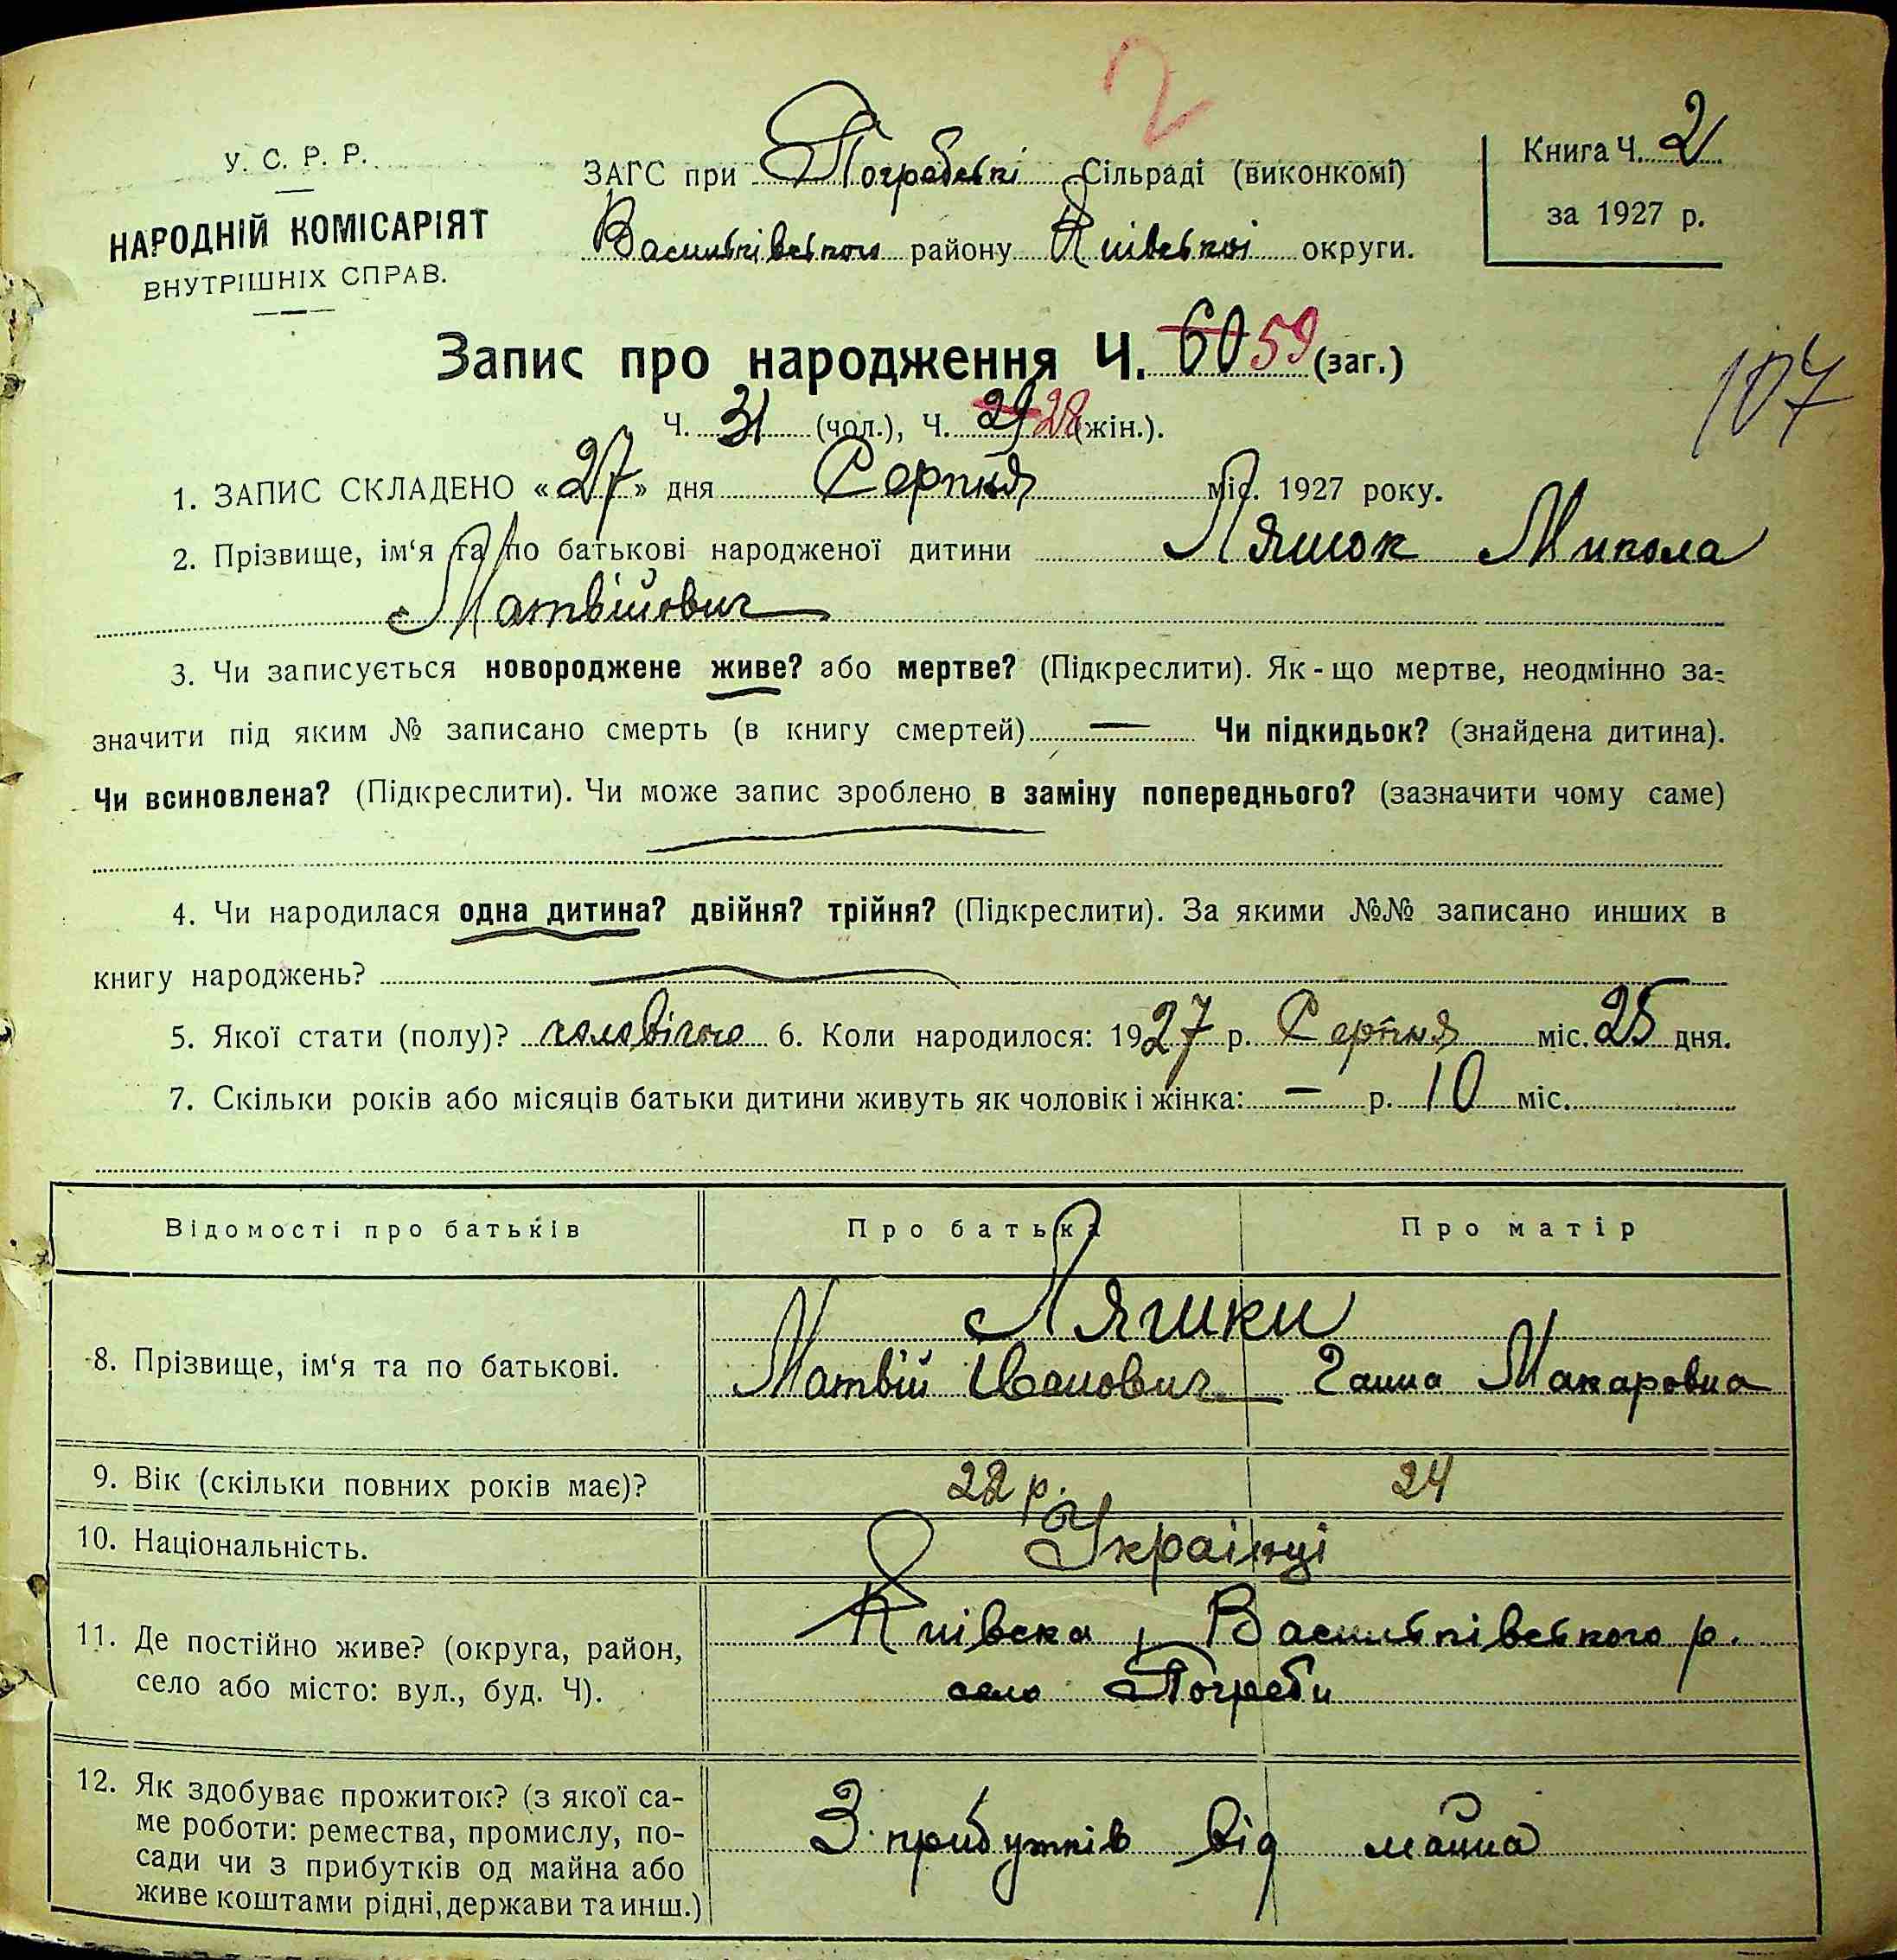 2
У. С. Р. Р.
НАРОДНІЙ КОМІСАРІЯТ
ВНУТРІШНІХ СПРАВ.
ЗАГС при Погребській Сільраді (виконкомі)
Васильківського району Київської округи.
Книга Ч. 2
за 1927 р.
Запис про народження Ч. 60 59 (заг.)
107
Ч. 31 (чол.), Ч. 29 28 (жін.).
1. ЗАПИС СКЛАДЕНО «27» дня Серпня міс. 1927 року.
2. Прізвище, ім‘я та по батькові народженої дитини Ляшок Микола
Матвійович
3. Чи записується новороджене живе? або мертве? (Підкреслити). Як-що мертве, неодмінно за-
значити під яким № записано смерть (в книгу смертей) — Чи підкидьок? (знайдена дитина).
Чи всиновлена? (Підкреслити). Чи може запис зроблено в заміну попереднього? (зазначити чому саме)
4. Чи народилася одна дитина? двійня? трійня? (Підкреслити). За якими №№ записано инших в
книгу народжень?
5. Якої стати (полу)? чоловічого 6. Коли народилося: 1927 р. Серпня міс. 25 дня.
7. Скільки років або місяців батьки дитини живуть як чоловік і жінка: — р. 10 міс.
Відомості про батьків Про батька Про матір
8. Прізвище, ім‘я та по батькові.
Ляшки
Матвій Іванович Ганна Макаровна
9. Вік (скільки повних років має)? 22 р. 24
10. Національність. Українці
11. Де постійно живе? (округа, район,
село або місто: вул., буд. Ч).
Київска, Васильківського р.
село Погреби
12. Як здобуває прожиток? (з якої са-
ме роботи: ремества, промислу, по-
сади чи з прибутків од майна або
живе коштами рідні, держави та инш.)
З прибутків від майна